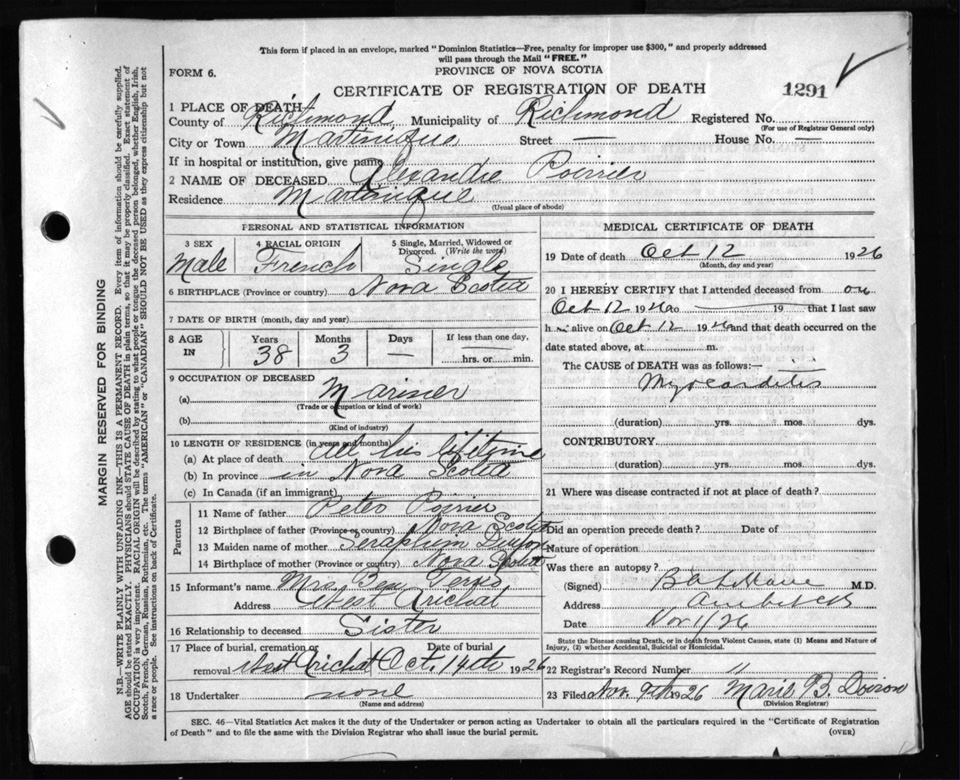 This form if placed in an envelope, marked "Dominion Statistics—Free, penalty for improper use $300," and properly addressed
will pass through the Mail "FREE."
FORM 6.
PROVINCE OF NOVA SCOTIA
CERTIFICATE OF REGISTRATION OF DEATH
1291
1 PLACE OF DEATH
County of Richmond Municipality of Richmond Registered No.
(For use of Registrar General only)
City or Town Martinique Street — House No. —
If in hospital or institution, give name
2 NAME OF DECEASED Alexandre Poirier
Residence Martinique
(Usual place of abode)
PERSONAL AND STATISTICAL INFORMATION
3 SEX Male
4 RACIAL ORIGIN French
5 Single, Married, Widowed or Divorced. (Write the word) Single
6 BIRTHPLACE (Province or country) Nova Scotia
7 DATE OF BIRTH (month, day and year)
8 AGE IN Years 38 Months 3 Days — If less than one day, hrs. or min.
9 OCCUPATION OF DECEASED
(a) Mariner
(Trade or occupation or kind of work)
(b)
(Kind of industry)
10 LENGTH OF RESIDENCE (in years and months)
(a) At place of death all his lifetime
(b) In province in Nova Scotia
(c) In Canada (if an immigrant)
Parents
11 Name of father Peter Poirier
12 Birthplace of father (Province or country) Nova Scotia
13 Maiden name of mother Seraphim
14 Birthplace of mother (Province or country) Nova Scotia
15 Informant's name Mrs. Ben
Address West Arichat
16 Relationship to deceased Sister
17 Place of burial, cremation or removal West Arichat Date of burial Oct. 14th 1926
18 Undertaker none
(Name and address)
MEDICAL CERTIFICATE OF DEATH
19 Date of death Oct 12 1926
(Month, day and year)
20 I HEREBY CERTIFY that I attended deceased from on
Oct 12 1926 to 19 that I last saw
h im alive on Oct 12 1926 and that death occurred on
date stated above, at m.
The CAUSE of DEATH was as follows:—
Myocarditis
(duration) yrs. mos. dys.
CONTRIBUTORY
(duration) yrs. mos. dys.
21 Where was disease contracted if not at place of death?
Did an operation precede death? Date of
Nature of operation
Was there an autopsy?
(Signed) M.D.
Address
Date Nov 1/26
State the Disease causing Death, or in death from Violent Causes, state (1) Means and Nature of
Injury, (2) whether Accidental, Suicidal or Homicidal.
22 Registrar's Record Number 11
23 Filed Nov. 1926 Marie B. Doiron
(Division Registrar)
SEC. 46—Vital Statistics Act makes it the duty of the Undertaker or person acting as Undertaker to obtain all the particulars required in the "Certificate of Registration
of Death" and to file the same with the Division Registrar who shall issue the burial permit.
(OVER)
MARGIN RESERVED FOR BINDING
N.B.—WRITE PLAINLY WITH UNFADING INK—THIS IS A PERMANENT RECORD. Every item of information should be carefully supplied.
AGE should be stated EXACTLY. PHYSICIANS should STATE CAUSE OF DEATH in plain terms, so that it may be properly classified. Exact statement of
OCCUPATION is very important. RACIAL ORIGIN will be described by stating to what people or tongue the deceased person belonged, whether English, Irish,
Scotch, French, German, Russian, Ruthenian, etc. The terms "AMERICAN" or "CANADIAN" SHOULD NOT BE USED as they express citizenship but not
a race or people. See instructions on back of Certificate.